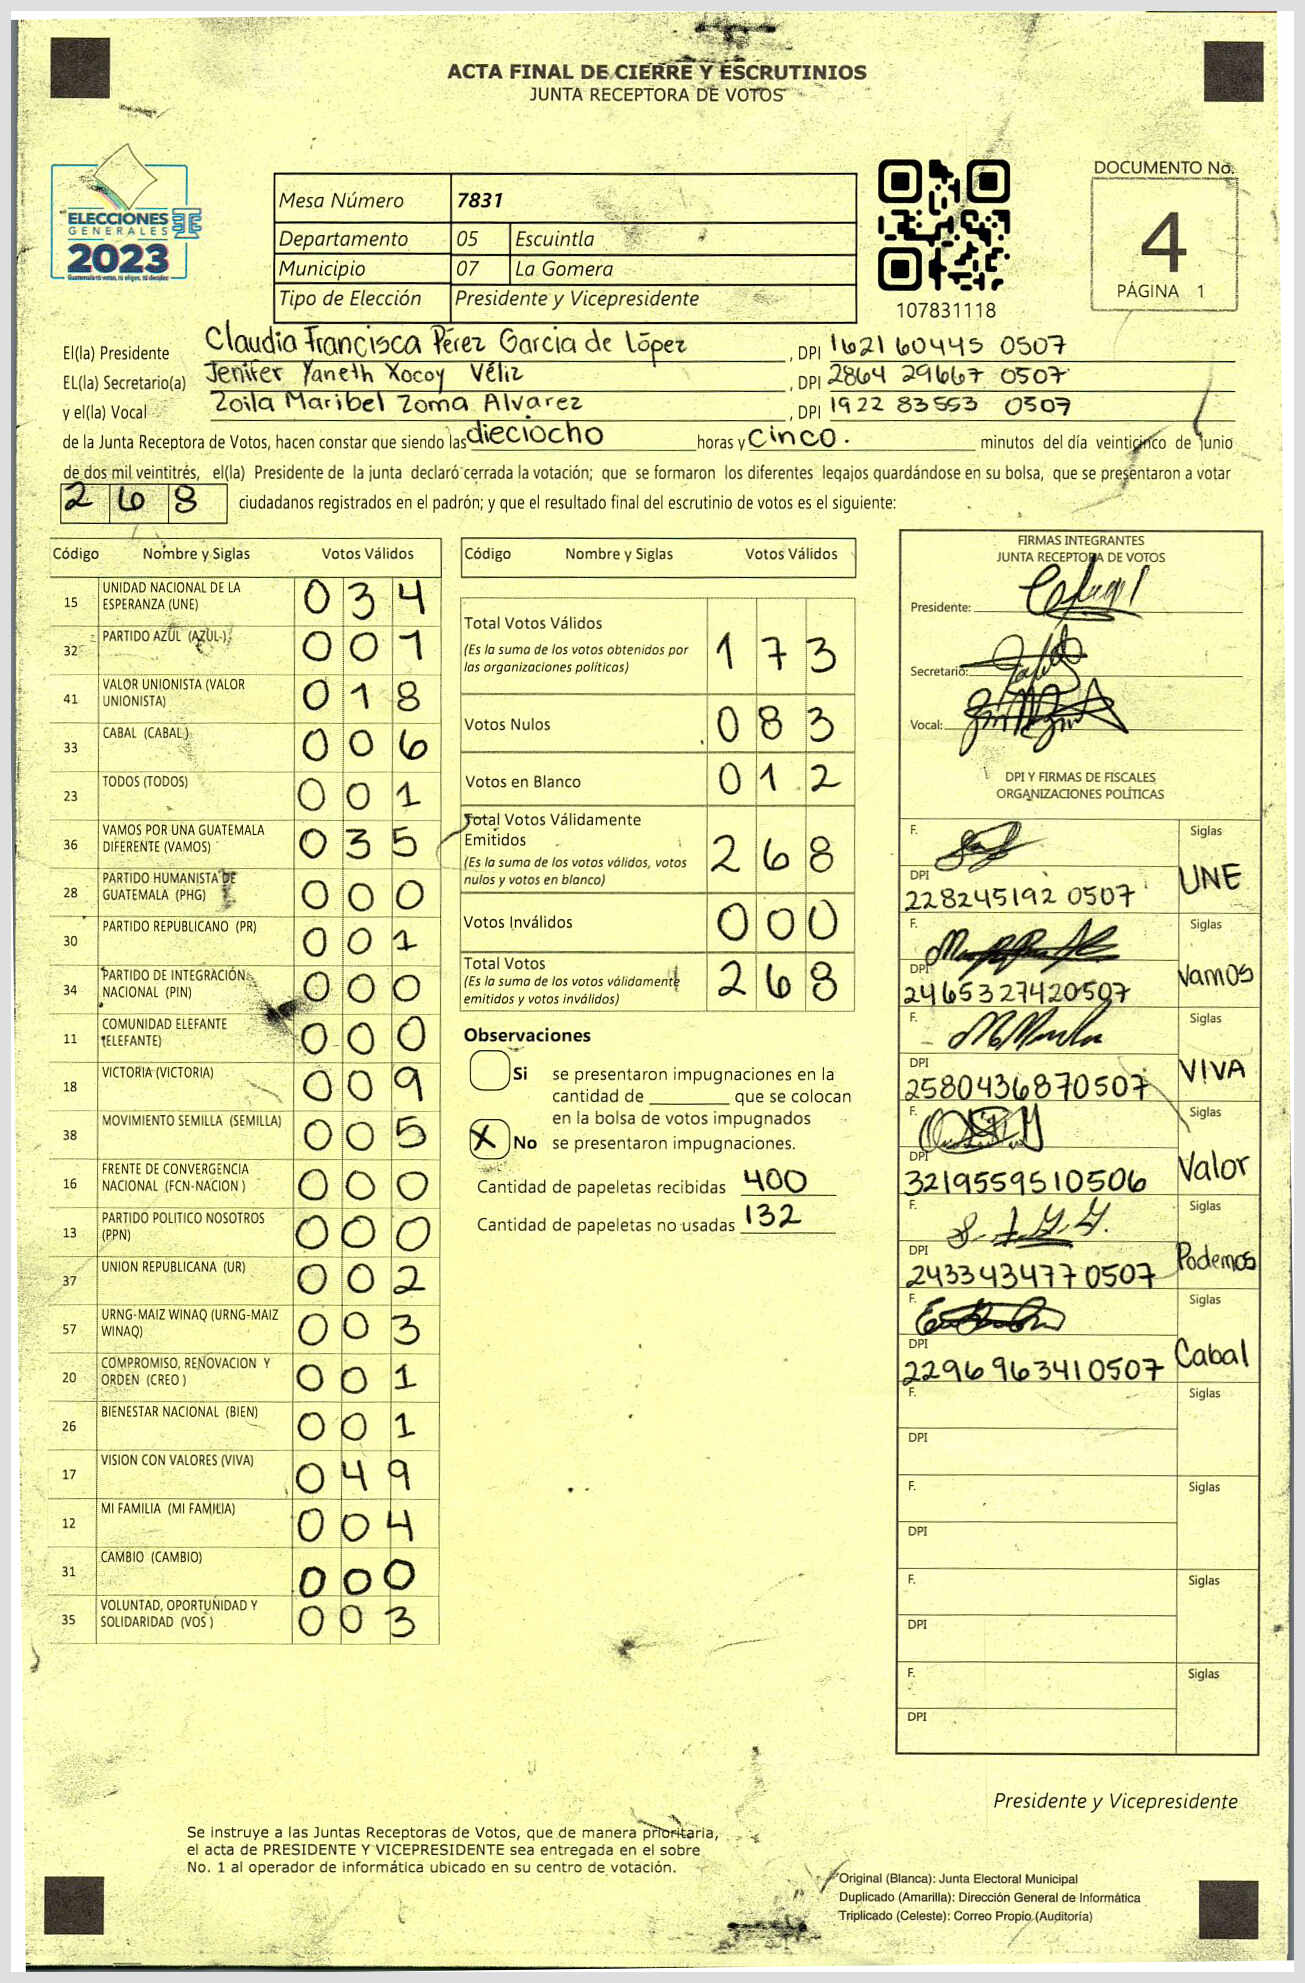 ACTA FINAL DE CIERRE Y ESCRUTINIOS
JUNTA RECEPTORA DE VOTOS
ELECCIONES
GENERALES
2023
Mesa Número 7831
Departamento 05 Escuintla
Municipio 07 La Gomera
Tipo de Elección Presidente y Vicepresidente
107831118
DOCUMENTO No.
4
PÁGINA 1
El(la) Presidente Claudia Francisca Pérez Garcia de López, DPI 1621 60445 0507
EL(la) Secretario(a) Jenifer Yaneth Xocoy Véliz, DPI 2864 29667 0507
y el(la) Vocal Zoila Maribel Zoma Alvarez, DPI 1922 83553 0507
de la Junta Receptora de Votos, hacen constar que siendo las dieciocho horas y cinco. minutos del día veinticinco de junio
de dos mil veintitrés, el(la) Presidente de la junta declaró cerrada la votación; que se formaron los diferentes legajos guardándose en su bolsa, que se presentaron a votar
268 ciudadanos registrados en el padrón; y que el resultado final del escrutinio de votos es el siguiente:
Código Nombre y Siglas Votos Válidos
15 UNIDAD NACIONAL DE LA ESPERANZA (UNE) 034
32 PARTIDO AZUL (AZUL) 001
41 VALOR UNIONISTA (VALOR UNIONISTA) 018
33 CABAL (CABAL) 006
23 TODOS (TODOS) 001
36 VAMOS POR UNA GUATEMALA DIFERENTE (VAMOS) 035
28 PARTIDO HUMANISTA DE GUATEMALA (PHG) 000
30 PARTIDO REPUBLICANO (PR) 001
34 PARTIDO DE INTEGRACIÓN NACIONAL (PIN) 000
11 COMUNIDAD ELEFANTE (ELEFANTE) 000
18 VICTORIA (VICTORIA) 009
38 MOVIMIENTO SEMILLA (SEMILLA) 005
16 FRENTE DE CONVERGENCIA NACIONAL (FCN-NACION ) 000
13 PARTIDO POLITICO NOSOTROS (PPN) 000
37 UNION REPUBLICANA (UR) 002
57 URNG-MAIZ WINAQ (URNG-MAIZ WINAQ) 003
20 COMPROMISO, RENOVACION Y ORDEN (CREO ) 001
26 BIENESTAR NACIONAL (BIEN) 001
17 VISION CON VALORES (VIVA) 049
12 MI FAMILIA (MI FAMILIA) 004
31 CAMBIO (CAMBIO) 000
35 VOLUNTAD, OPORTUNIDAD Y SOLIDARIDAD (VOS ) 003
Código Nombre y Siglas Votos Válidos
Total Votos Válidos 173
(Es la suma de los votos obtenidos por
las organizaciones políticas)
Votos Nulos 083
Votos en Blanco 012
Total Votos Válidamente
Emitidos 268
(Es la suma de los votos válidos, votos
nulos y votos en blanco)
Votos Inválidos 000
Total Votos 268
(Es la suma de los votos válidamente
emitidos y votos inválidos)
Observaciones
Si se presentaron impugnaciones en la
cantidad de ________ que se colocan
en la bolsa de votos impugnados
X No se presentaron impugnaciones.
Cantidad de papeletas recibidas 400
Cantidad de papeletas no usadas 132
FIRMAS INTEGRANTES
JUNTA RECEPTORA DE VOTOS
Presidente:
Secretario:
Vocal:
DPI Y FIRMAS DE FISCALES
ORGANIZACIONES POLÍTICAS
F. Siglas
DPI UNE
228245192 0507
F. Siglas
DPI Vamos
2465327420507
F. Siglas
DPI VIVA
2580436870507
F. Siglas
DPI Valor
3219559510506
F. Siglas
DPI Podemos
243343477 0507
F. Siglas
DPI Cabal
2296963410507
F. Siglas
DPI
F. Siglas
DPI
F. Siglas
DPI
F. Siglas
DPI
Presidente y Vicepresidente
Se instruye a las Juntas Receptoras de Votos, que de manera prioritaria,
el acta de PRESIDENTE Y VICEPRESIDENTE sea entregada en el sobre
No. 1 al operador de informática ubicado en su centro de votación.
Original (Blanca): Junta Electoral Municipal
Duplicado (Amarilla): Dirección General de Informática
Triplicado (Celeste): Correo Propio (Auditoría)